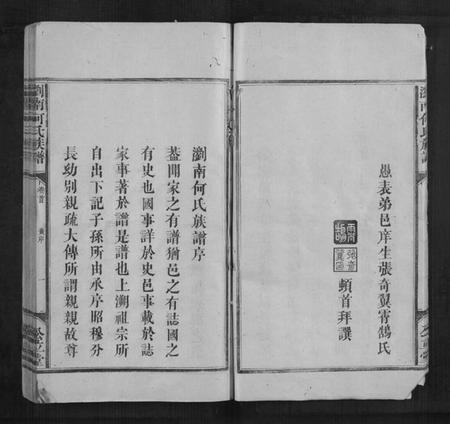 愚表弟邑庠生張奇翼霄鵠氏
頓首拜譔
瀏南何氏族譜序
葢聞家之有譜猶邑之有誌國之
有史也國事詳於史邑事載於誌
家事著於譜是譜也上溯祖宗所
自出下記子孫所由承序昭穆分
長幼別親疏大傳所謂親親故尊
瀏南何氏族譜
瀏南何氏族譜
卷首
序
一